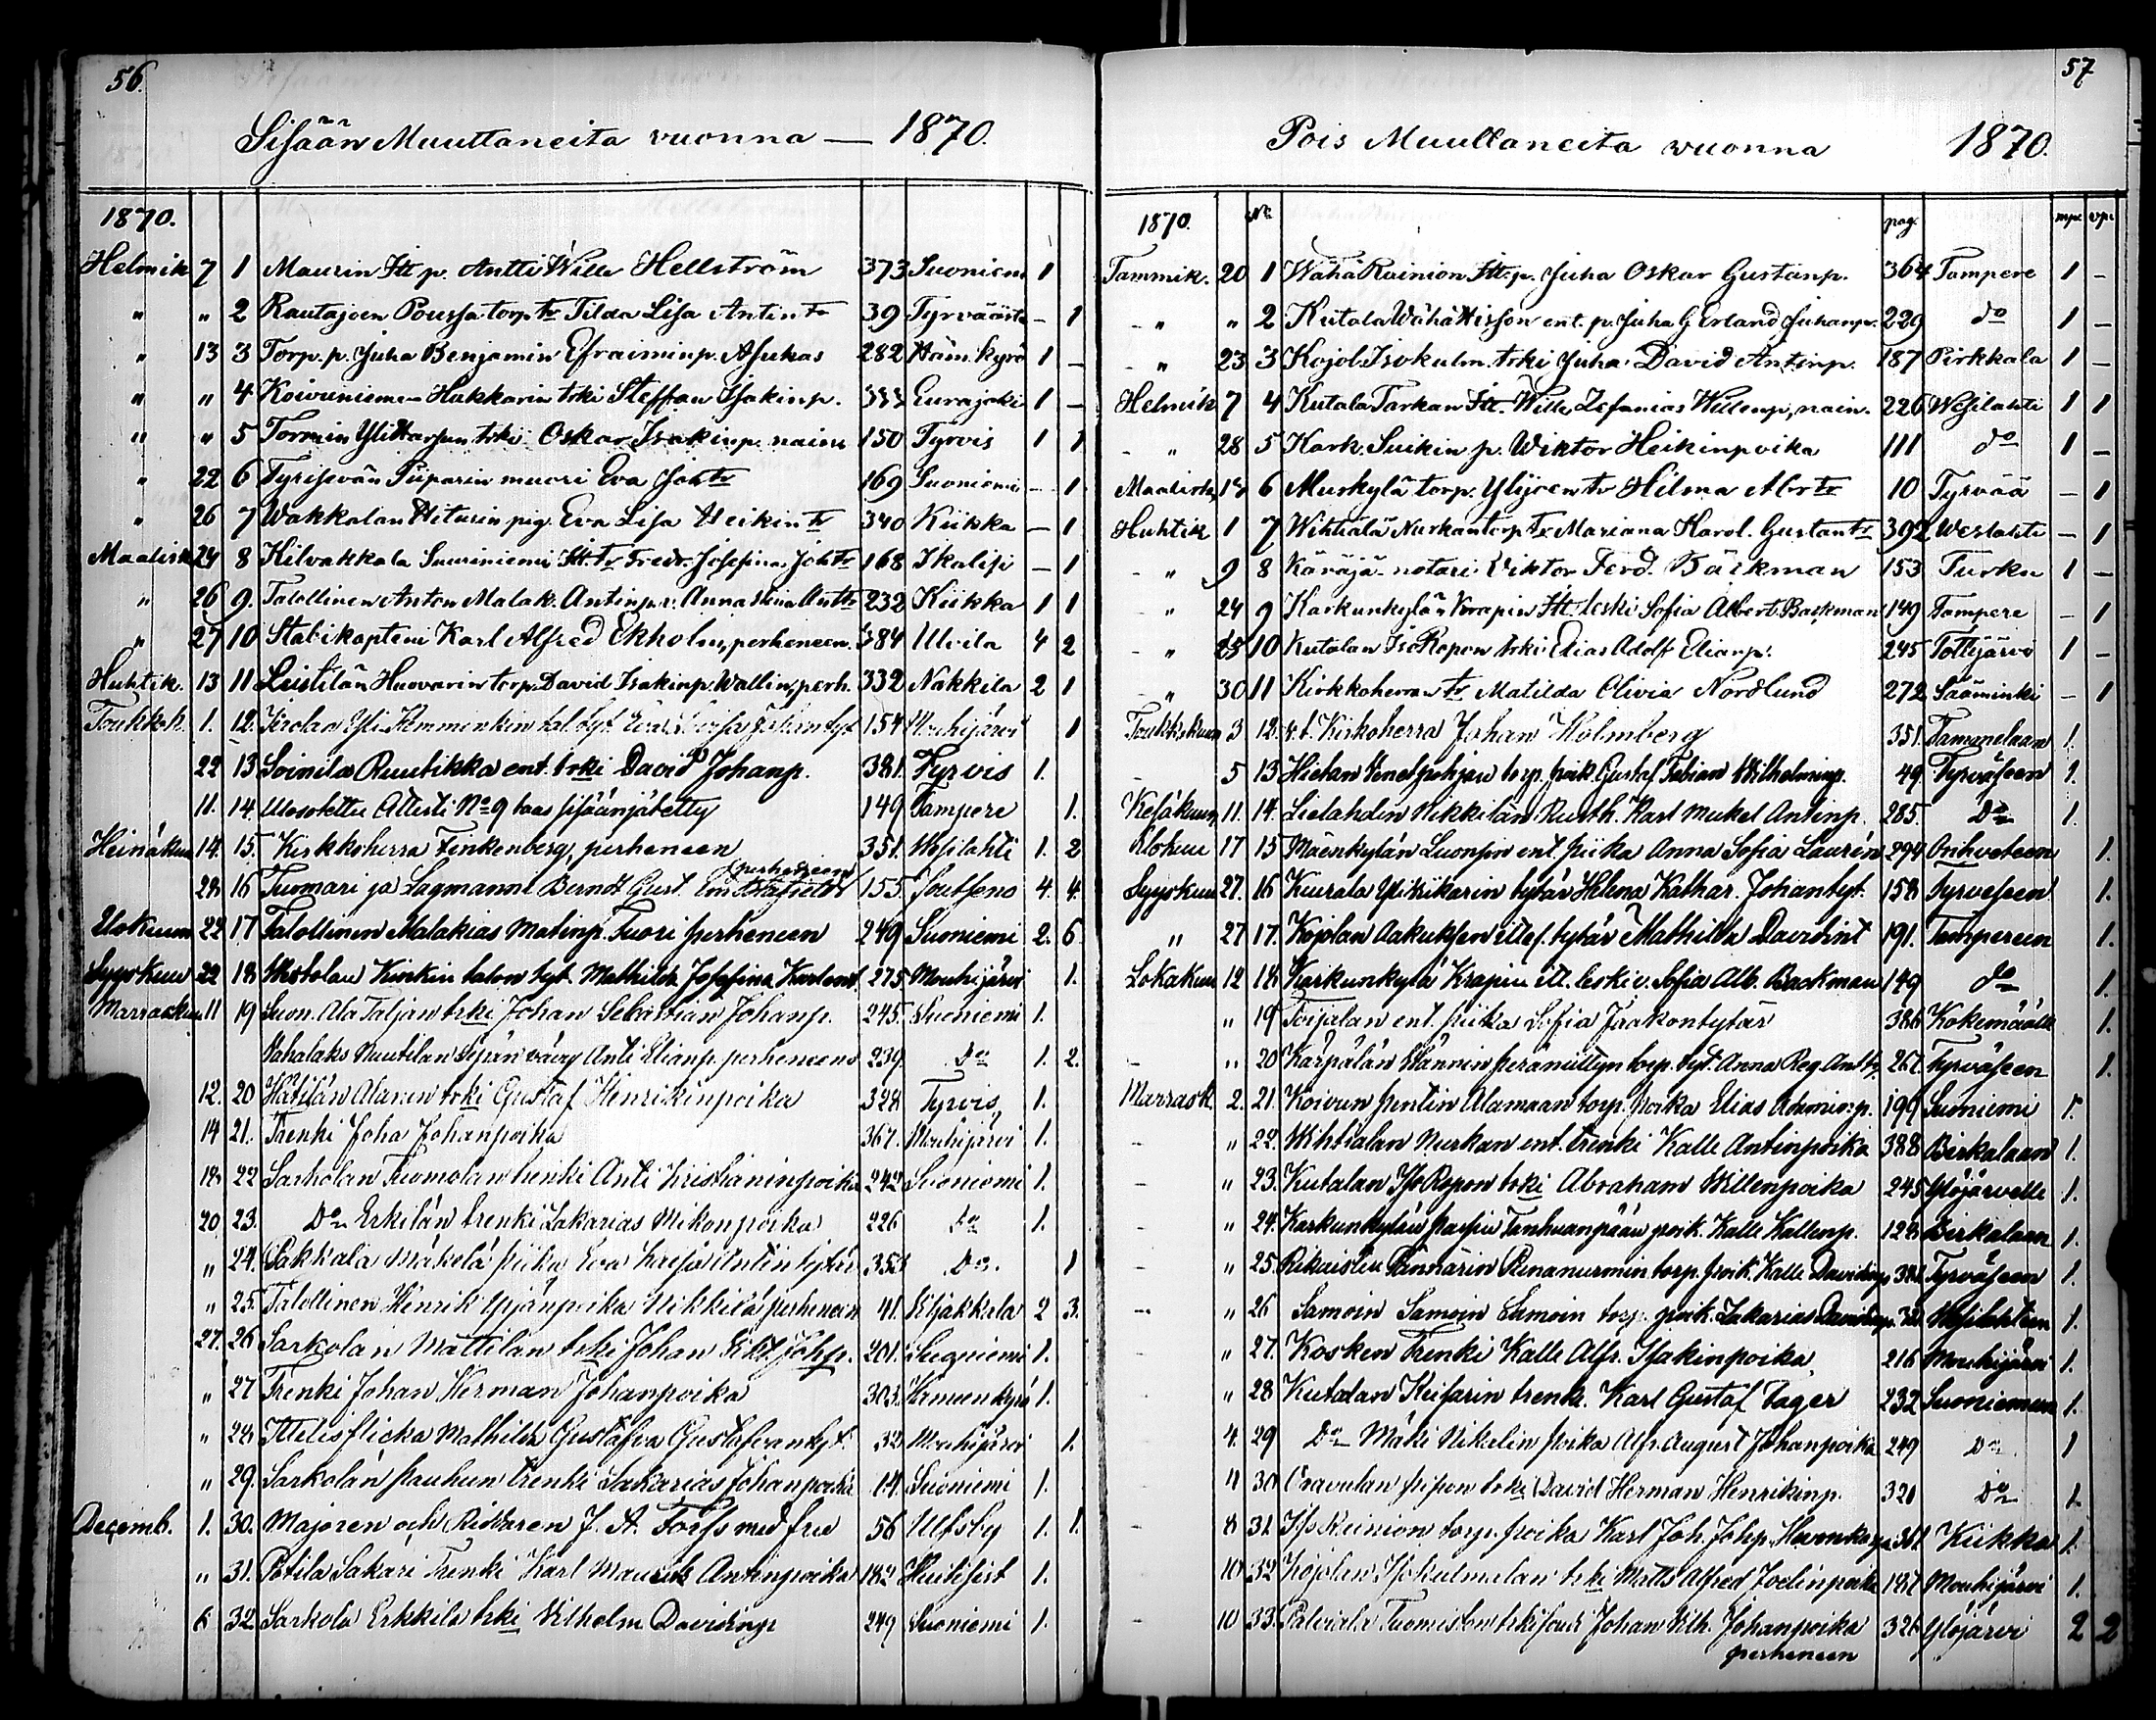 56.
Sisään Muuttaneita vuonna — 1870.
1870.
Helmik 7 1 Maurin Itt p. Antti Wille Hellström 373 Suoniem 1
" " 2 Rautajoen Poussa torp. tr Tilda Lisa Antintr 39 Tyrväästä – 1
" 13 3 Torp. p. Juha Benjamin Efraiminp. Asukas 282 Häm. kyrö 1 –
" " 4 Koivuniemen Hakkarin trki Steffan Isakinp. 333 Eurajoki 1 –
" " 5 Tormin Ylittarsun trki Oskar Isakinp. naine 150 Tyrvis 1 1
" 22 6 Tyrisevän Piiparin muori Eva Johtr 169 Suoniemi – 1
" 26 7 Wakkalan Hiturin pig. Eva Lisa Heikintr 340 Kiikka – 1
Maalisk 24 8 Kilvakkala Suuriniemi Itt. tr Fredr. Josefina Johtr 168 Ikalisi – 1
" 26 9. Talollinen Anton Malak. Antinp. v. Anna Stina Anttr 232 Kiikka 1 1
" 27 10 Stabikapteni Karl Alfred Ekholm, perheneen. 384 Ulvila 4 2
Huhtik. 13 11 Liistilän Huovarin torp. David Isakinp. Wallin, perh. 332 Nakkila 2 1
Toukok. 1. 12. Yli Hemminkin tal. tyt. 154 Mouhijärvi 1
22 13 Soinila Ruutikka ent. trki David Johanp. 381. Tyrvis 1.
11. 14. Ulosotettu Attesti No 9 taas sisäänjätetty 149 Tampere 1.
Heinäkuu 14. 15. Kirkkoherra Finkenberg, perheneen 351. Wesilahti 1. 2
perheineen
28 16 Tuomari ja Lagmanni Berndt Gust. 155 Joutseno 4. 4.
Elokuun 22 17. Talollinen Malakias Matinp. Tuori perheneen 249 Suoniemi 2. 6.
Syyskuu 22 18. Kinkin talon tyt. Mathilda Josefina Karlent 275 Mouhijärvi 1.
Marraskuu 11 19 Suon. Ala Taljan trki Johan Sebastian Johanp. 245. Suoniemi 1.
Sahalaks Nuutilan sepän vävy Anti Elianp. perheneens 239. Do 1. 2.
12. 20 Hätilän Alanen trki Gustaf Henrikinpoika 328 Tyrvis 1.
14 21. Trenki Joha Johanpoika 367. Mouhijärvi 1.
18 22 Sarkolan Tuomolan trenki Anti Kristianinpoika 242 Suoniemi 1.
20 23. Do Erkilän trenki Zakarias Mikonpoika 226 do 1.
" 24. Sakkala Mäkelä piika Eva Antin tytär 353 Do. 1
" 25. Talollinen Henrik Yrjänpoika Nikkilä perheneen 41. Kljakkala 2 3.
27. 26 Sarkolan Mattilan trki Johan Vikt. Johp. 201. Suoniemi 1.
" 27 Trenki Johan Herman Johanpoika 303. Hämeenkyrö 1.
" 28 Itellisflicka Mathilda Gustafva Gustafvantyt. 32 Mouhijärvi 1.
" 29. Sarkolan Pauhun trenki Sakarias Johanpoika 14. Suoniemi 1.
Decemb. 1. 30. Majoren och Riddaren J. A. Torss med fru 56 Ulfsby 1. 1.
" 31. Pötila Sakari Trenki Karl Maurits Antinpoika 182 Huitisist 1.
6 32. Sarkola Erkkilä trki Vilhelm Davidinp 249 Suoniemi 1.
57
Pois Muuttaneita vuonna 1870.
1870. No pag. mp. vp.
Tammik. 20 1 Wähä Rainion Itt. p. Juha Oskar Gustanp. 364 Tampere 1 –
– " " 2 Kutala Wähä Hisson ent. p. Juha G Erland Juhanp. 229 do 1 –
– " 23 3 Kojol. Isokulm. trki Juha David Antinp. 187 Pirkkala 1 –
Helmik 7 4 Kutala Tarkan Itt. Wille Zefanias Willenp, nain. 226 Wesilahti 1 1
– " 28 5 Kark. Suikin p. Wiktor Heikinpoika 111 do 1 –
Maalisk 14 6 Murkylä torp. Ylijoen tr Hilma Abrtr 10 Tyrvää – 1
Huhtik 1 7 Wihtiälä Nurkan torp. tr Mariana Karol. Gustantr 392 Weslahti – 1
– " 9 8 Käräjä-notari Viktor Ferd. Bäckman 153 Turku 1 –
– " 24 9 Karkunkylän Krapin Itt. leski Sofia Albert. Backman 149 Tampere – 1
– " 25 10 Kutalan Iso Ropon trki Elias Adolf Elianp. 245 Tottijärvi 1 –
– " 30 11 Kirkkoherran tr. Matilda Olivia Nordlund 272 Sääminki – 1
Toukokuu 3 12. v. t. Kirkoherra Johan Holmberg 351. Tammelaan 1.
– 5 13 Hietan Venespohjan torp. poik. Gustaf Fabian Vilhelminp. 49. Tyrväseen 1.
Kesäkuun 11. 14. Lielahden Nikkilän Rusth. Karl Mikel Antinp. 285. Do 1.
Elokuu 17 15 Mäenkylän Luonpon ent. piika Anna Sofia Laurén 294 Orihveteen 1.
Syyskuu 27. 16 Kuurala Yli Kiikarin tytär Helena Kathar. Johantyt. 158 Tyrveseen 1.
" 27 17. Kojolan Aakuksen itlel. tytär Mathilda Davidint 191. Tampereen 1.
Lokakuu 12 18. Karkunkylä Krapin it. leski v. Sofia Alb. Backman 149 do 1.
" 19 Toijalan ent. piika Sofia Jaakontytär 386 Kokemäälle 1.
– " 20 Kärpälän Hannin perämiityn torp. tyt. Anna Reg. Anttr. 267. Tyrväseen 1.
Marrask. 2. 21. Koivun Pentin Alamaan torp. poika Elias Adaminp. 199 Suoniemi 1.
– " 22. Wihtialan Nurkan ent. trenki Kalle Antinpoika 388 Birkalaan 1.
– " 23. Kutalan Iso Ropon trki Abraham Willenpoika 245 Ylöjärvelle 1.
– " 24. Karkunkylän Paspin Tanhuanpään poik. Kalle Kallenp. 128 Birkalaan 1.
– " 25. Rekaisten Pännärin Rinanurmin torp. poik. Kalle Davidinp. 381. Tyrväseen 1.
– " 26 Samoin Samoin Samoin torp. poik. Zakarias Davidinp. Wesilahteen 1.
– " 27. Kosken Trenki Kalle Alfr. Isakinpoika 216 Mouhijärvi 1.
– " 28 Kutalan Keisarin trenk. Karl Gustaf Lager 232 Suoniemeen 1.
– 4. 29 Do Mäki Nikulin poika Alfr. August Johanpoika 249 Do 1
– " 30 trki David Herman Henrikinp. 320 Do 1.
– 8 31 Iso Reinion torp. poika Karl Joh. Johp. 361 Kiikka 1.
– 10 32 Kojolan Iso Kulmalan trki Matts Alfred Joelinpoika 187 Mouhijärvi 1.
– 10 33. Tuomiston Johan Vilh. Johanpoika 326 Ylöjärvi 2 2
perheneen